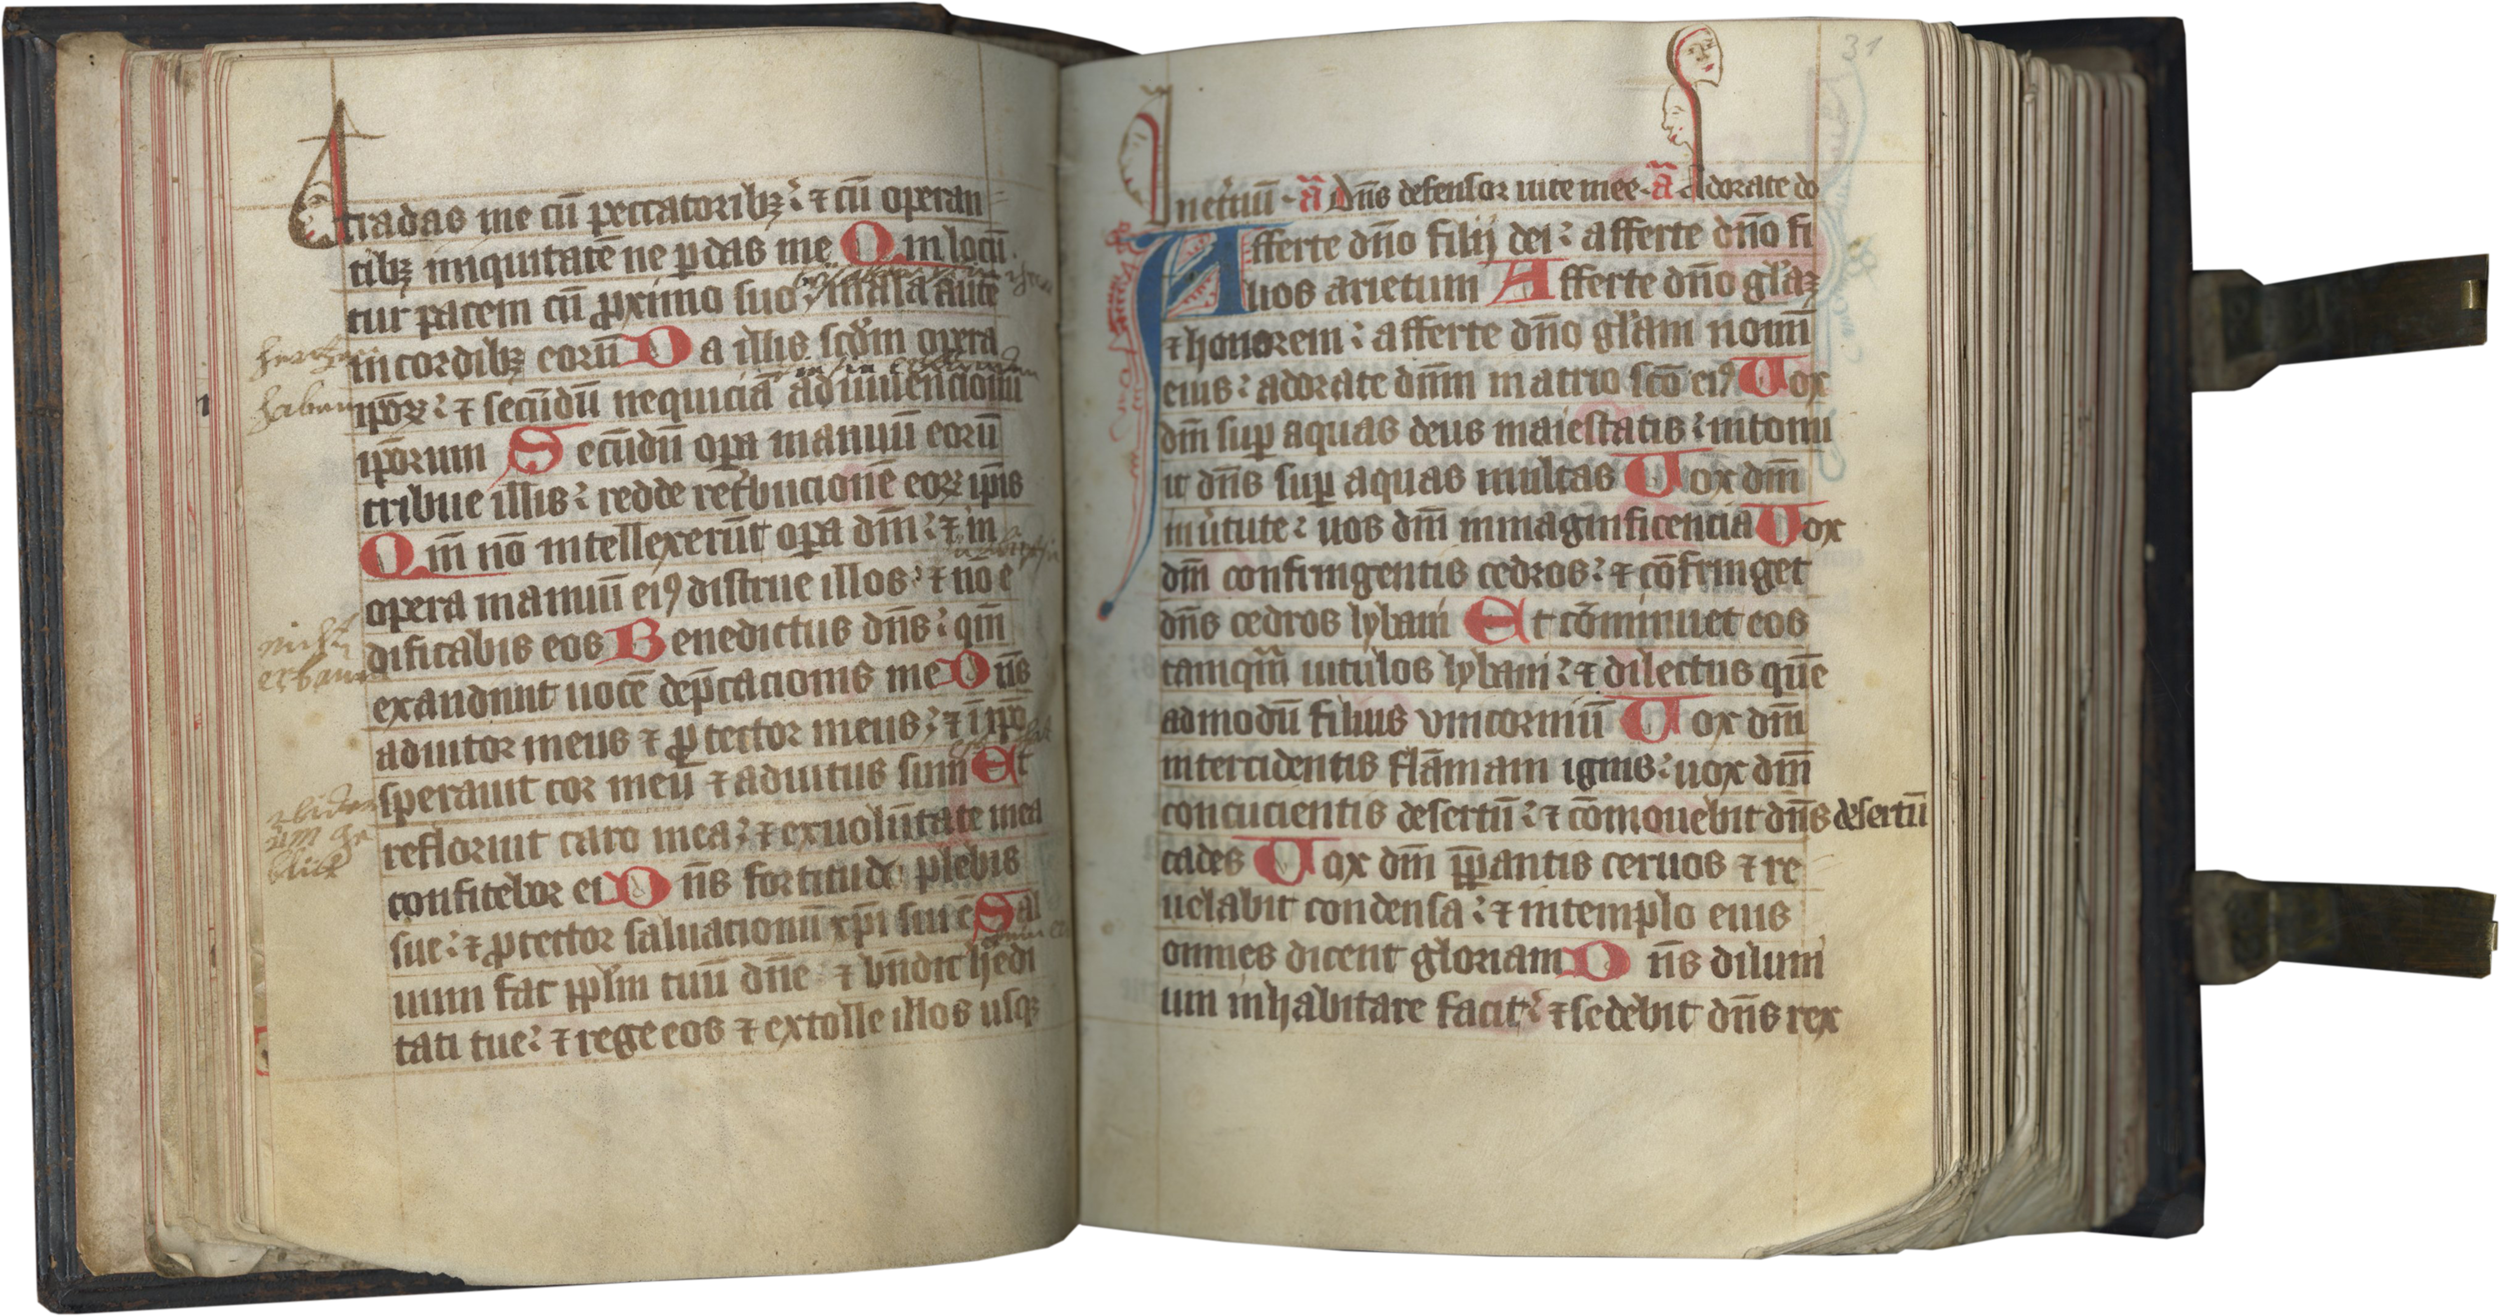 tradas me cū peccatoribꝫ ⁊ cū operan
tibꝫ iniquitatē ne ꝑdas me Qui locū
tur pacem cū ꝓximo suo mala autē
in cordibꝫ eorū Da illis scdm opera
ipoꝝ ⁊ secūdū nequiciā adinuencionū
iporum Secūdū oꝑa manuū eorū
tribue illis redde retˀbucionē eoꝝ ipis
Qm̄ nō intellexerūt oꝑa dn̄i ⁊ in
opera manuū eiꝰ distrue illos ⁊ nō e
nicht
dificabis eos Benedictus dn̄s qm̄
exaudiuit uocē dep̄cacionis me Dn̄s
adiutor meus ⁊ ꝓtector meus ⁊ ī ipō
sperauit cor meū ⁊ adiutus sum Et
refloruit caro mea ⁊ ex uolūtate mea
confitebor ei Dn̄s fortitudo plebis
sue ⁊ ꝓtector saluacionū xp̄i sui ē Sal
uum fac pplm tuū dn̄e ⁊ bn̄dic hedi
tati tue ⁊ rege eos ⁊ extolle illos usqꝫ
31
inet̄nū ā Dn̄s defensor uite mee ā Adorate do
Afferte dn̄o filij dei afferte dn̄o fi
lios arietum Afferte dn̄o glaꝫ
⁊ honorem afferte dn̄o glam nomī
eius adorate dnm in atrio scō eiꝰ Uox
dn̄i suꝑ aquas deus maiestatis intonu
it dn̄s suꝑ aquas multas Uox dn̄i
in ūtute uos dn̄i in magnificencia Uox
dn̄i confringentis cedros ⁊ cōfringet
dn̄s cedros lybani Et cōminuet eos
tamqm̄ uitulos lybani ⁊ dilectus quē
admodū filius vnicorniū Uox dn̄i
intercidentis flāmam ignis uox dn̄i
concucientis desertū ⁊ cōmouebit dn̄s desertū
cades Uox dn̄i p̄ꝑantis ceruos ⁊ re
uelabit condensa ⁊ in templo eius
omnes dicent gloriam Dn̄s diluui
um inhabitare facit ⁊ sedebit dn̄s rex